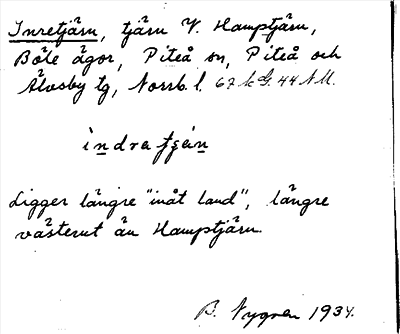 Inretjärn, tjärn V. Hamptjärn,
Böle ägor, Piteå sn, Piteå och
Älvsby tg, Norrb. l. 67 k G. 44 N M.
Ligger längre "inåt land", längre
västerut än Hamptjärn.
B. Nygren 1934.